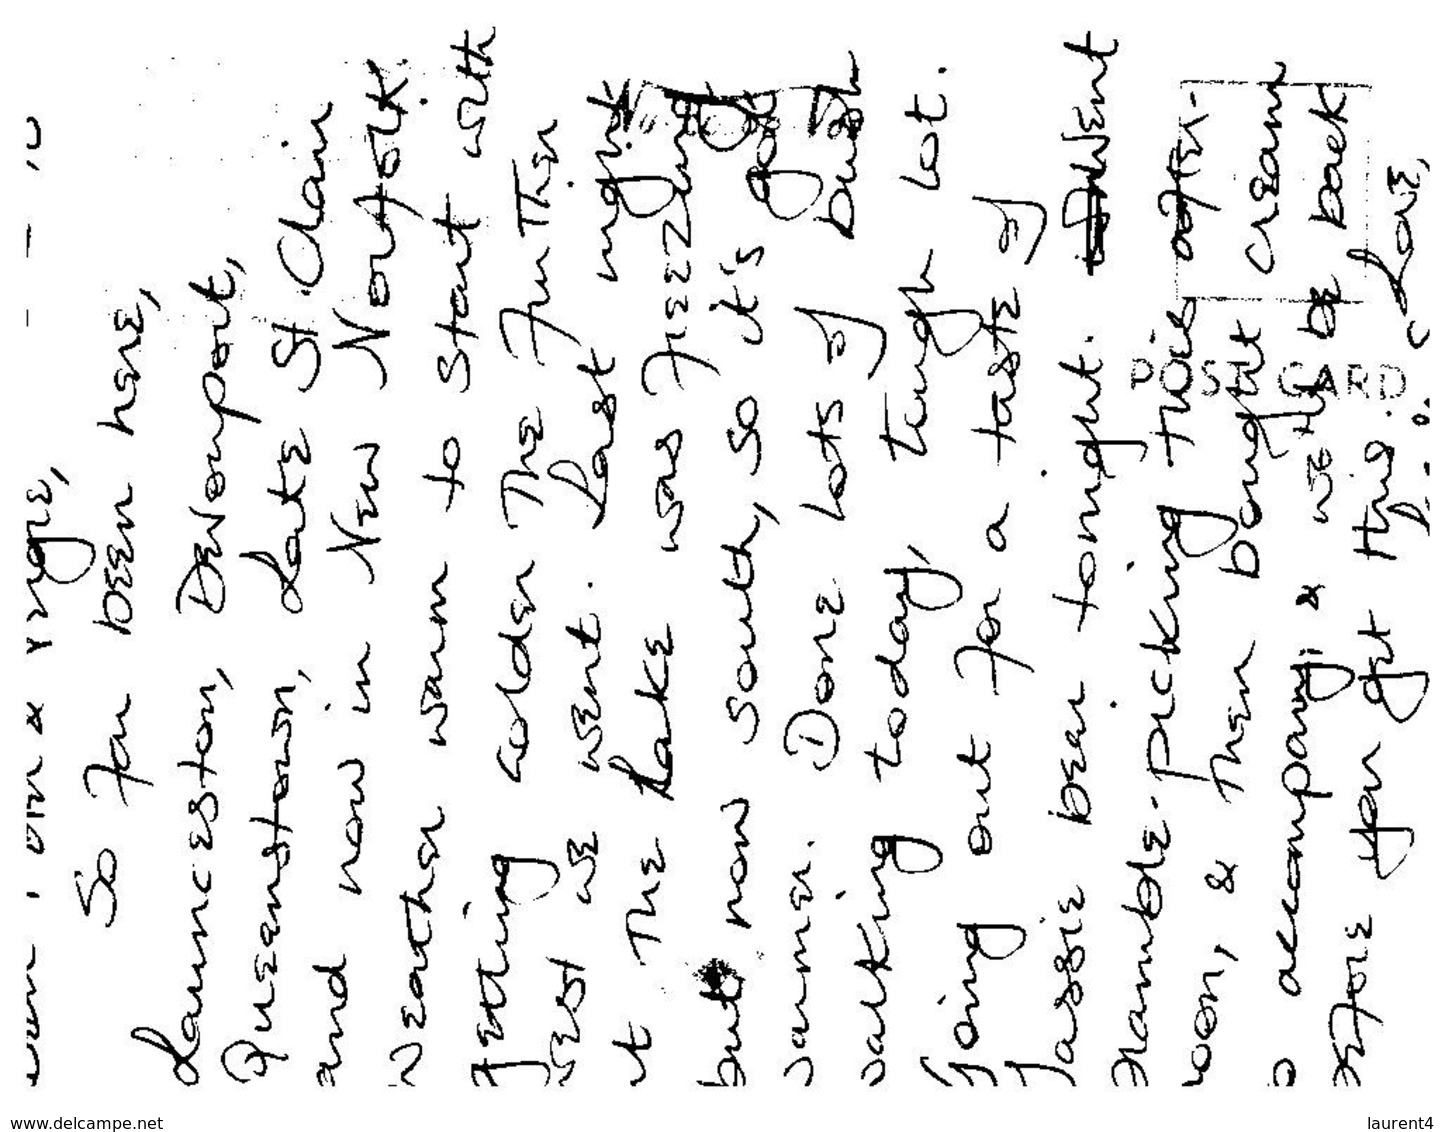 So far been here,
Launceston, Devonport,
Queenstown, Late St. Clair
and now in New Norfolk.
Weather warm to start with
getting colder the further
west we went. Last night
at the Lake was freezing
but now south, so it's got
warmer. Done lots of bush
walking today, tough lot.
Going out for a taste of
Tassie beer tonight. Went
bramble-picking this after-
noon, & then bought cream
to accompany; & we'll be back
before you get this. Love,
POST CARD
www.delcampe.net
laurent4